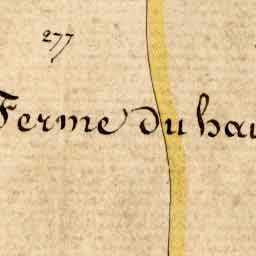 277
Ferme du hau